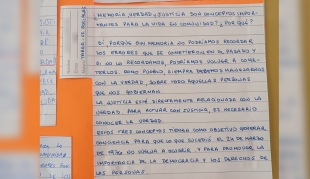 MEMORIA, VERDAD Y JUSTICIA SON CONCEPTOS IMPOR-
TANTES PARA LA VIDA EN COMUNIDAD ¿POR QUÉ?
SÍ, PORQUE SIN MEMORIA NO PODRÍAMOS RECORDAR
LOS ERRORES QUE SE COMETIERON EN EL PASADO Y
SI NO LO RECORDAMOS, PODRÍAMOS VOLVER A COME-
TERLOS. COMO PUEBLO, SIEMPRE DEBEMOS MANEJARNOS
CON LA VERDAD, SOBRE TODO AQUELLAS PERSONAS
QUE NOS GOBIERNAN.
LA JUSTICIA ESTÁ DIRECTAMENTE RELACIONADA CON LA
VERDAD. PARA ACTUAR CON JUSTICIA, ES NECESARIO
CONOCER LA VERDAD.
ESTOS TRES CONCEPTOS TIENEN COMO OBJETIVO GENERAR
CONCIENCIA PARA QUE LO QUE SUCEDIÓ EL 24 DE MARZO
DE 1976 NO VUELVA A OCURRIR Y PARA PROMOVER LA
IMPORTANCIA DE LA DEMOCRACIA Y LOS DERECHOS DE
LAS PERSONAS.